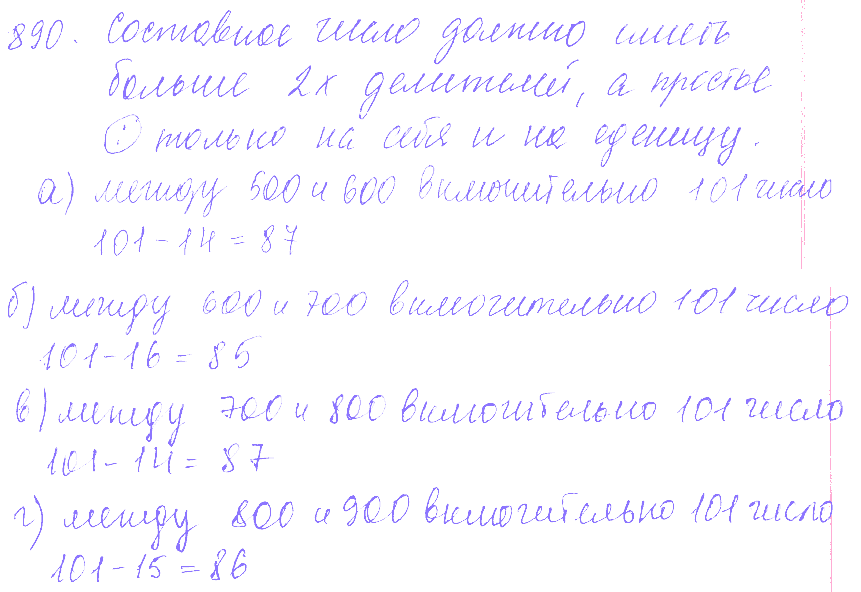 890. Составное число должно иметь
больше 2х делителей, а простые
: только на себя и на еденицу.
а) между 500 и 600 включительно 101 число
101-14=87
б) между 600 и 700 включительно 101 число
101-16=85
в) между 700 и 800 включительно 101 число
101-14=87
г) между 800 и 900 включительно 101 число
101-15=86